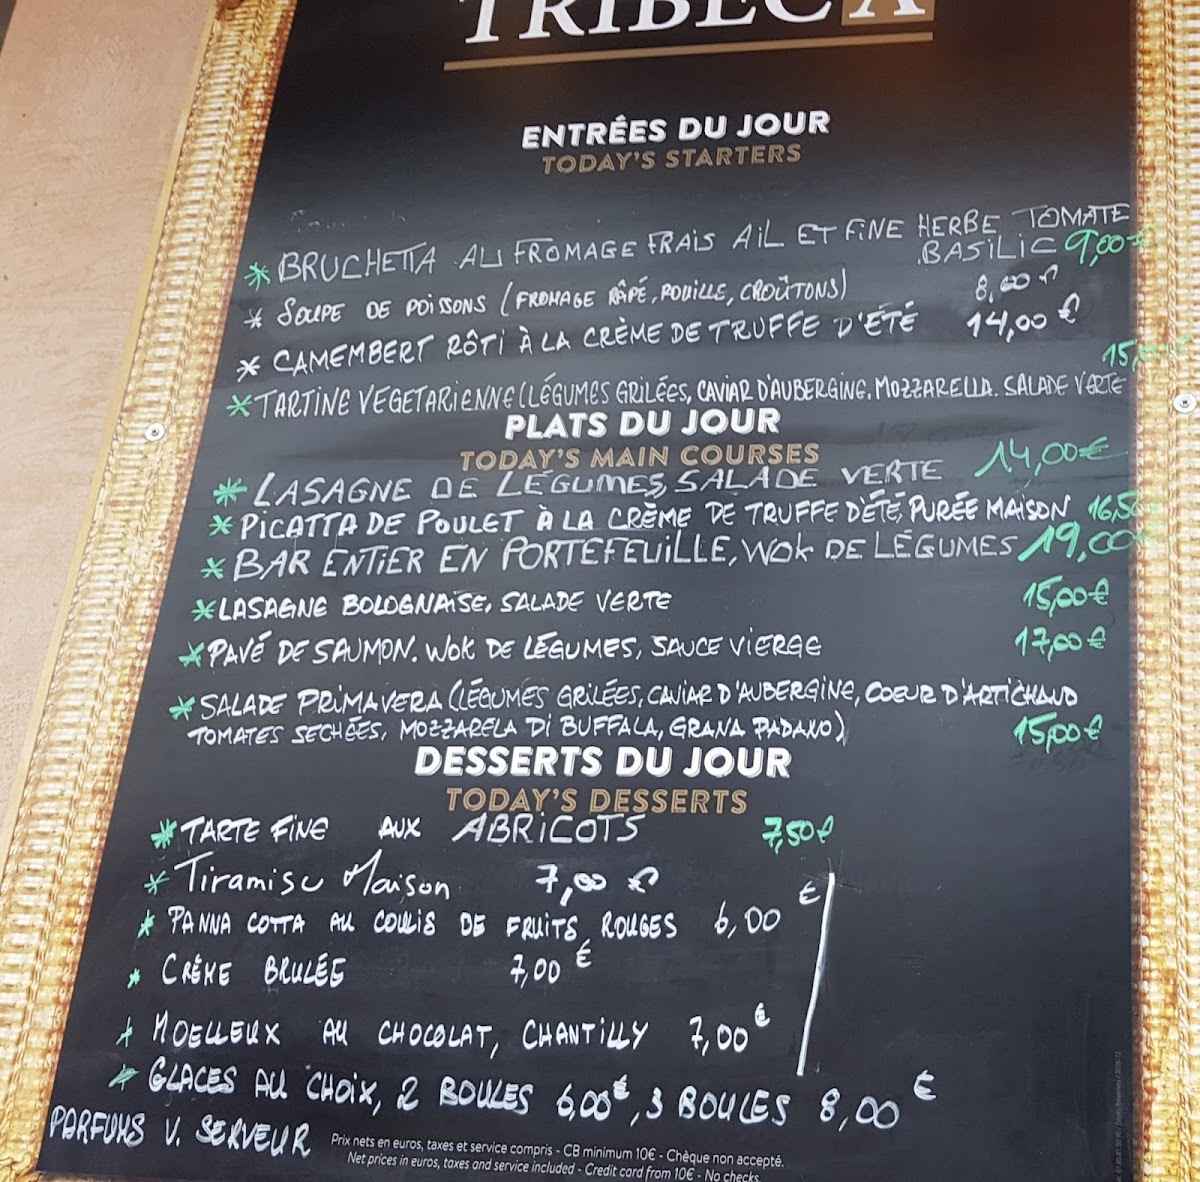 TRIBECA
ENTRÉES DU JOUR
TODAY'S STARTERS
* BRUCHETTA AU FROMAGE FRAIS AIL ET FINE HERBE TOMATE
BASILIC 9,00€
* SOUPE DE POISSONS (FROMAGE RÂPÉ, ROUILLE, CROÛTONS) 8,00 €
* CAMEMBERT RÔTI À LA CRÈME DE TRUFFE D'ÉTÉ 14,00 €
* TARTINE VEGETARIENNE (LÉGUMES GRILÉES, CAVIAR D'AUBERGINE, MOZZARELLA. SALADE VERTE
PLATS DU JOUR
TODAY'S MAIN COURSES
* LASAGNE DE LÉGUMES, SALADE VERTE 14,00€
* PICATTA DE POULET À LA CRÈME DE TRUFFE D'ÉTÉ, PURÉE MAISON 16,50
* BAR ENTIER EN PORTEFEUILLE, WOK DE LÉGUMES 19,00
* LASAGNE BOLOGNAISE, SALADE VERTE 15,00€
* PAVÉ DE SAUMON. WOK DE LÉGUMES, SAUCE VIERGE 17,00€
* SALADE PRIMAVERA (LÉGUMES GRILÉES, CAVIAR D'AUBERGINE, COEUR D'ARTICHAUD
TOMATES SECHÉES, MOZZARELA DI BUFFALA, GRANA PADANO) 15,00€
DESSERTS DU JOUR
TODAY'S DESSERTS
* TARTE FINE AUX ABRICOTS 7,50€
* Tiramisu Maison 7,00 €
* PANNA COTTA AU COULIS DE FRUITS ROUGES 6,00 €
* CRÈME BRULÉE 7,00 €
* MOELLEUX AU CHOCOLAT, CHANTILLY 7,00 €
* GLACES AU CHOIX, 2 BOULES 6,00€, 3 BOULES 8,00 €
PARFUMS V. SERVEUR
Prix nets en euros, taxes et service compris - CB minimum 10€ - Chèque non accepté.
Net prices in euros, taxes and service included - Credit card from 10€ - No checks.